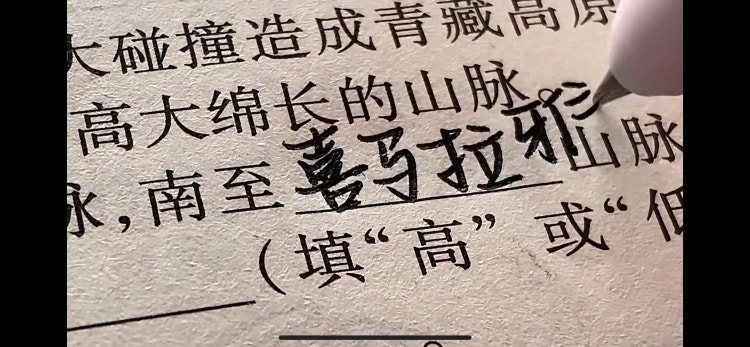 大碰撞造成青藏高原
高大绵长的山脉。
脉,南至喜马拉雅山脉
(填“高”或“低